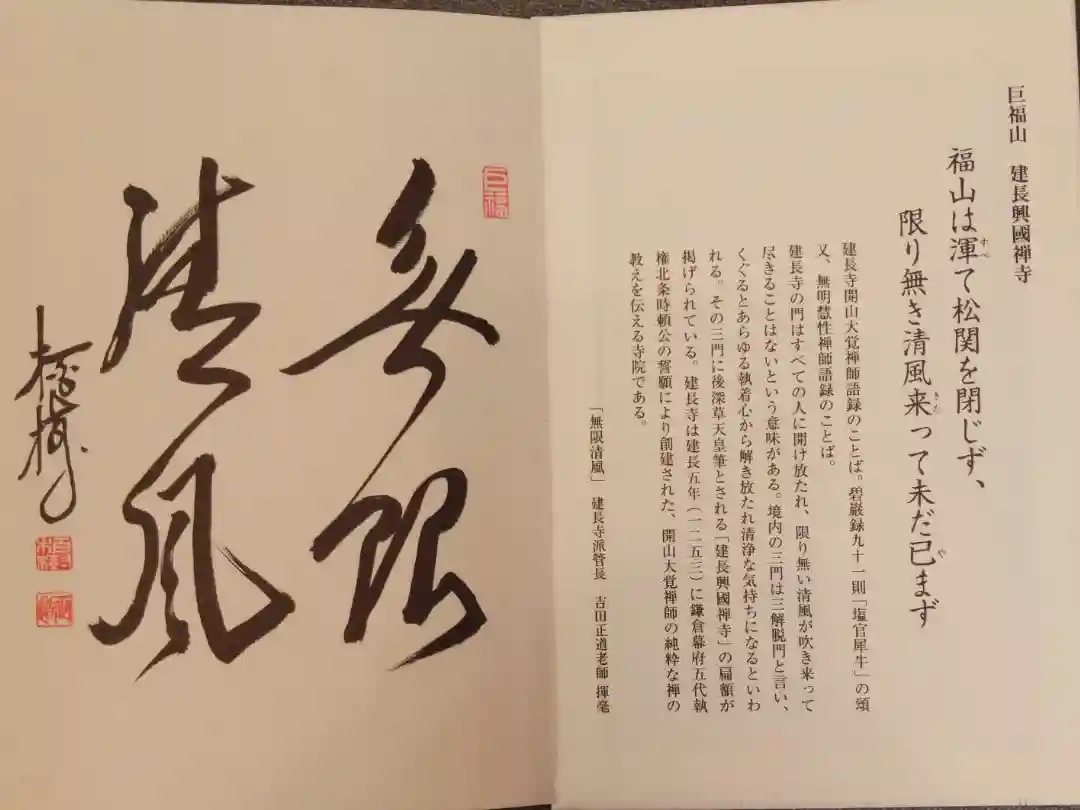 巨福山　建長興國禅寺
福山は渾て松関を閉じず、
すべ
限り無き清風来って未だ已まず
きた
や
建長寺開山大覚禅師語録のことば。碧巌録九十一則「塩官犀牛」の頌
又、無明慧性禅師語録のことば。
建長寺の門はすべての人に開け放たれ、限り無い清風が吹き来って
尽きることはないという意味がある。境内の三門は三解脱門と言い、
くぐるとあらゆる執着心から解き放たれ清浄な気持ちになるといわ
れる。その三門に後深草天皇筆とされる「建長興國禅寺」の扁額が
掲げられている。建長寺は建長五年（一二五三）に鎌倉幕府五代執
権北条時頼公の誓願により創建された、開山大覚禅師の純粋な禅の
教えを伝える寺院である。
「無限清風」　建長寺派管長　吉田正道老師　揮毫
巨福
無限
清風